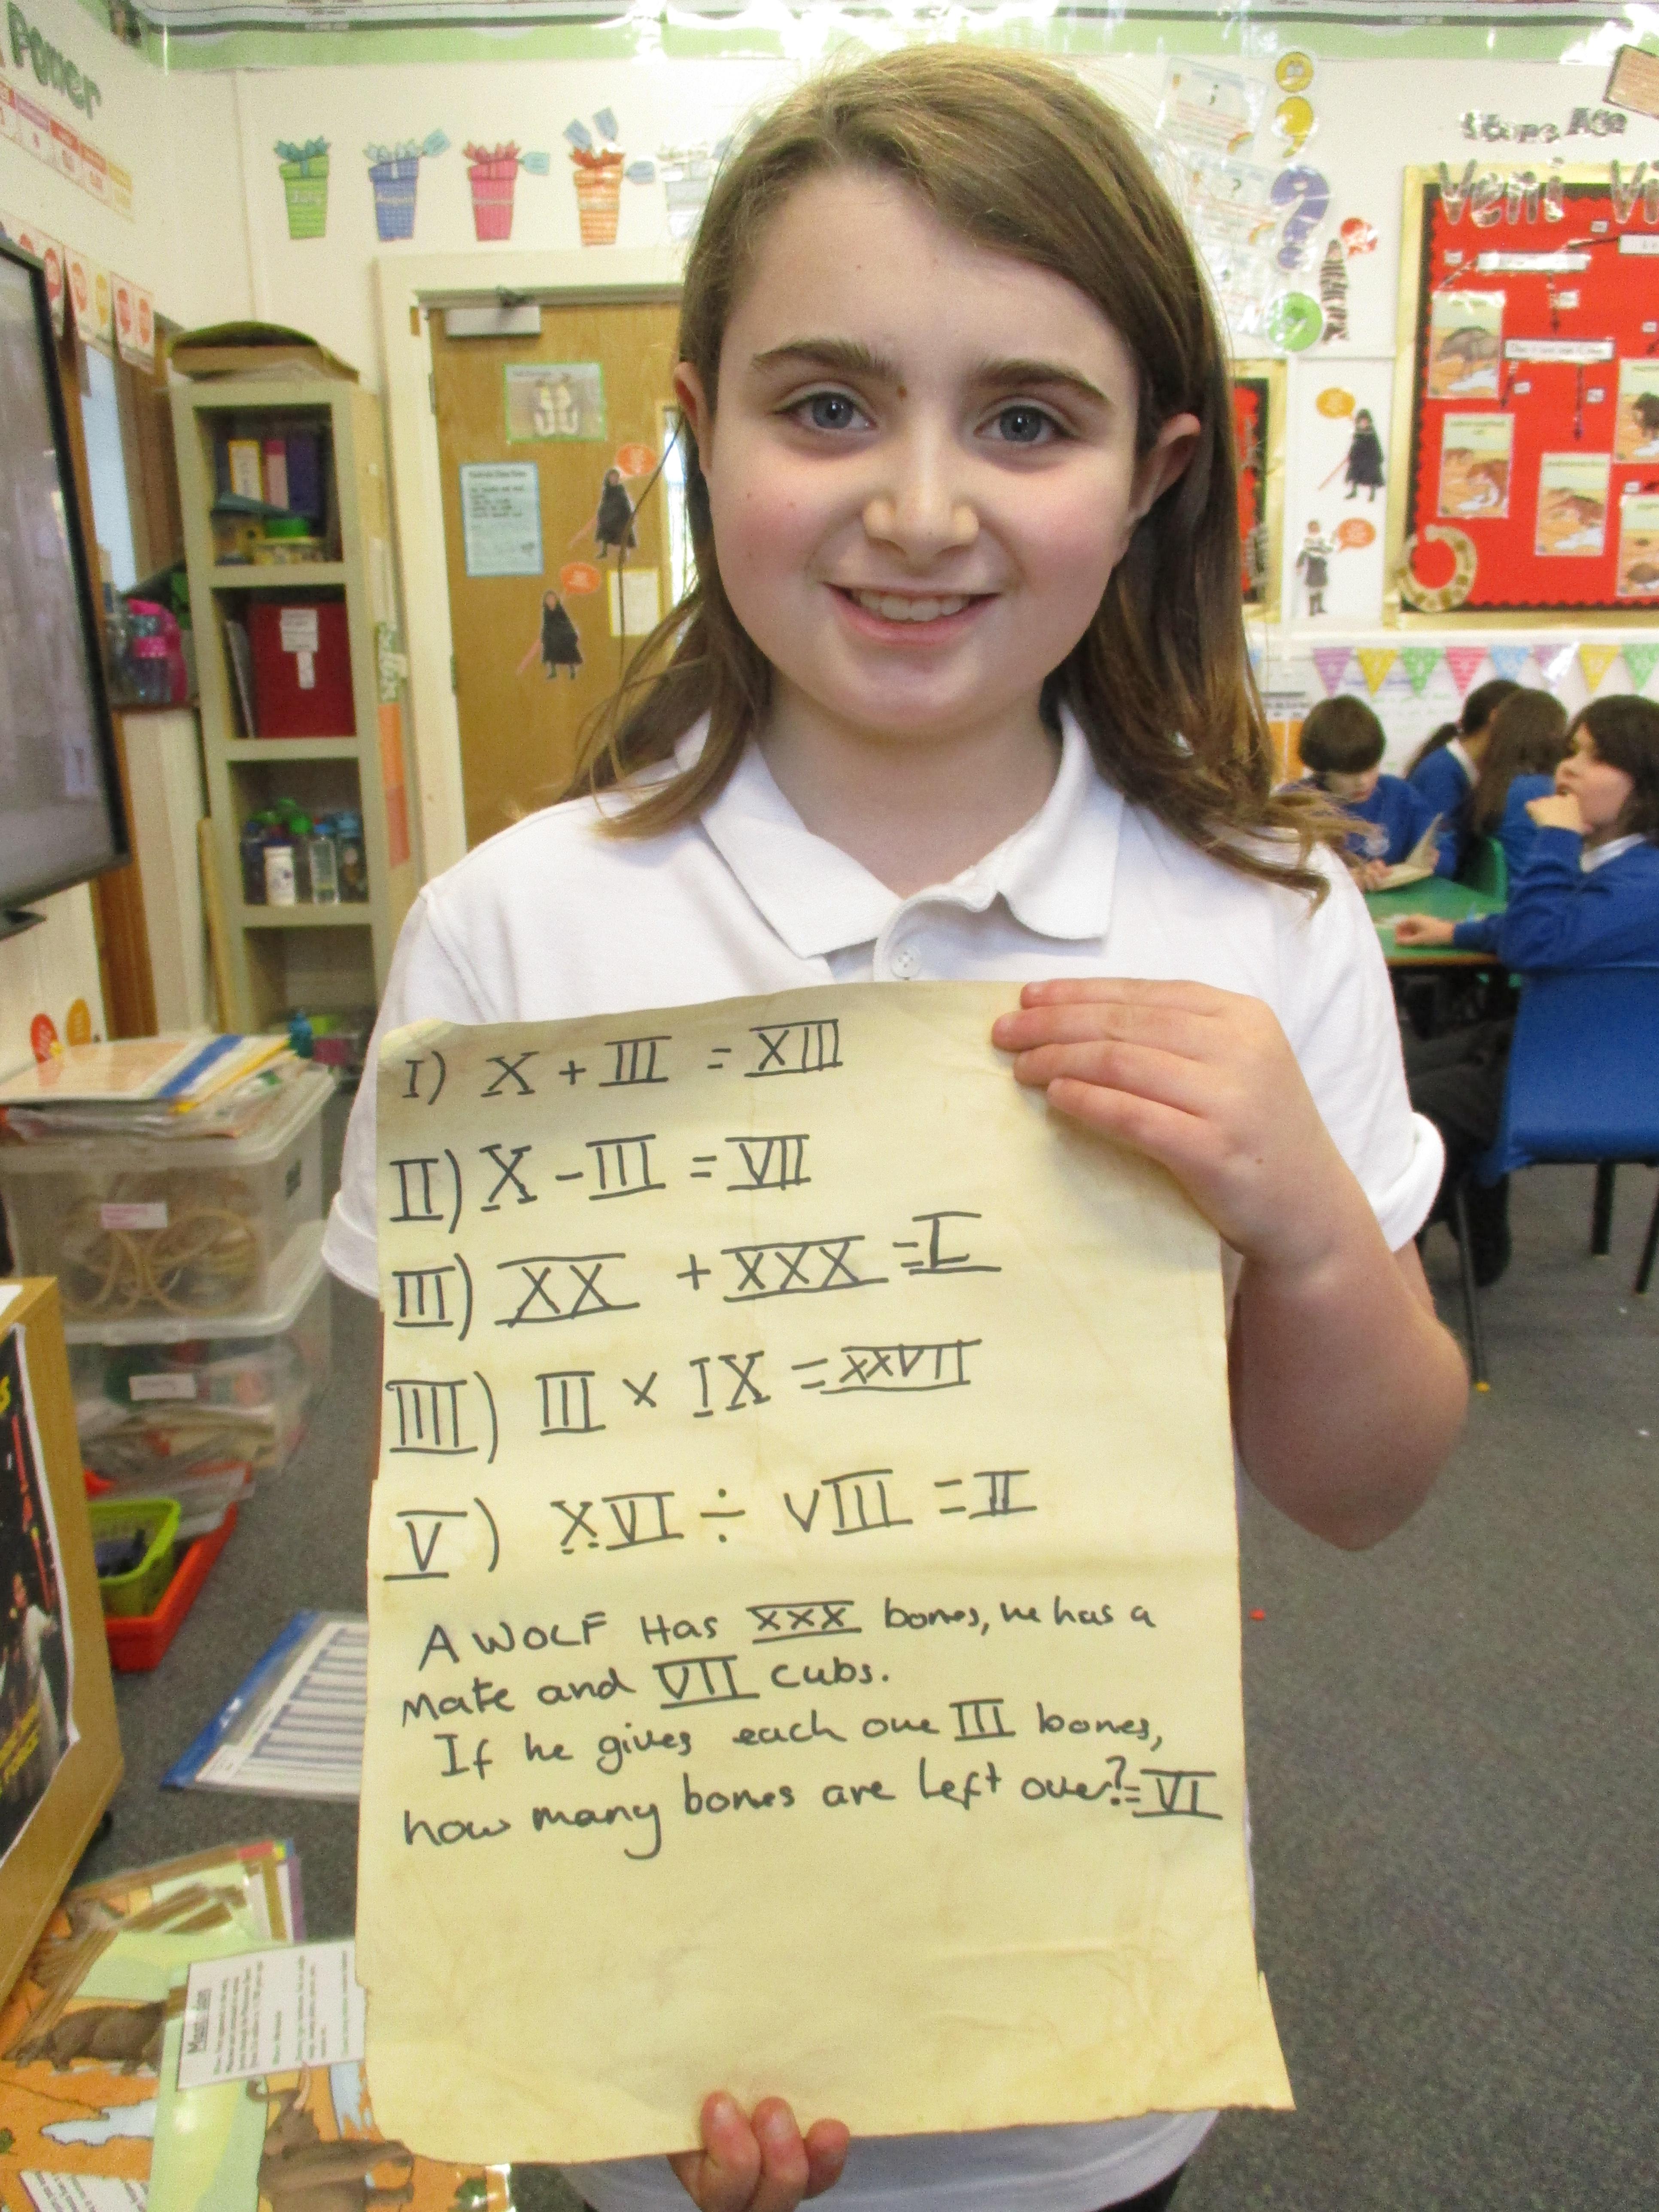 Power
July
August
Stone Age
Veni Vi
I) X + III = XIII
II) X - III = VII
III) XX + XXX = L
IIII) III × IX = XXVII
V) XVI ÷ VIII = II
A WOLF Has XXX bones, he has a
Mate and VII cubs.
If he gives each one III bones,
how many bones are left over? = VI